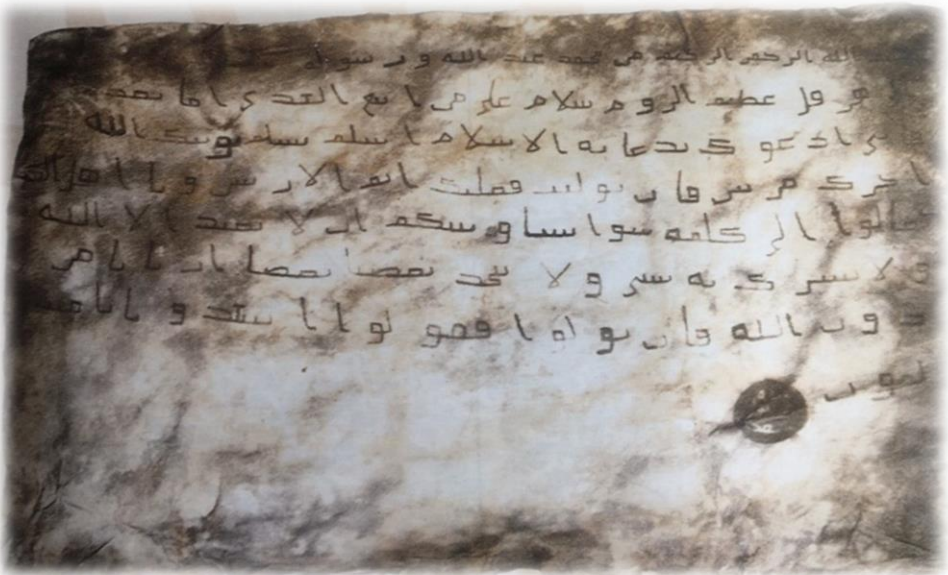 الله الرحمن الرحيم من محمد عبد الله ورسوله
هرقل عظيم الروم سلام على من اتبع الهدى اما بعد
ى ادعوك بدعايه الاسلام اسلم تسلم يوتك الله
اجرك مرتين فان توليت فعليك اثم الاريسين و يا اهل
تعالوا الى كلمه سوا بيننا وبينكم ان لا نعبد الا الله
ولا نشرك به شى ولا يتخذ بعضنا بعضا اربابا من
دون الله فان تولوا فقولوا اشهدوا بانا مس
لمون